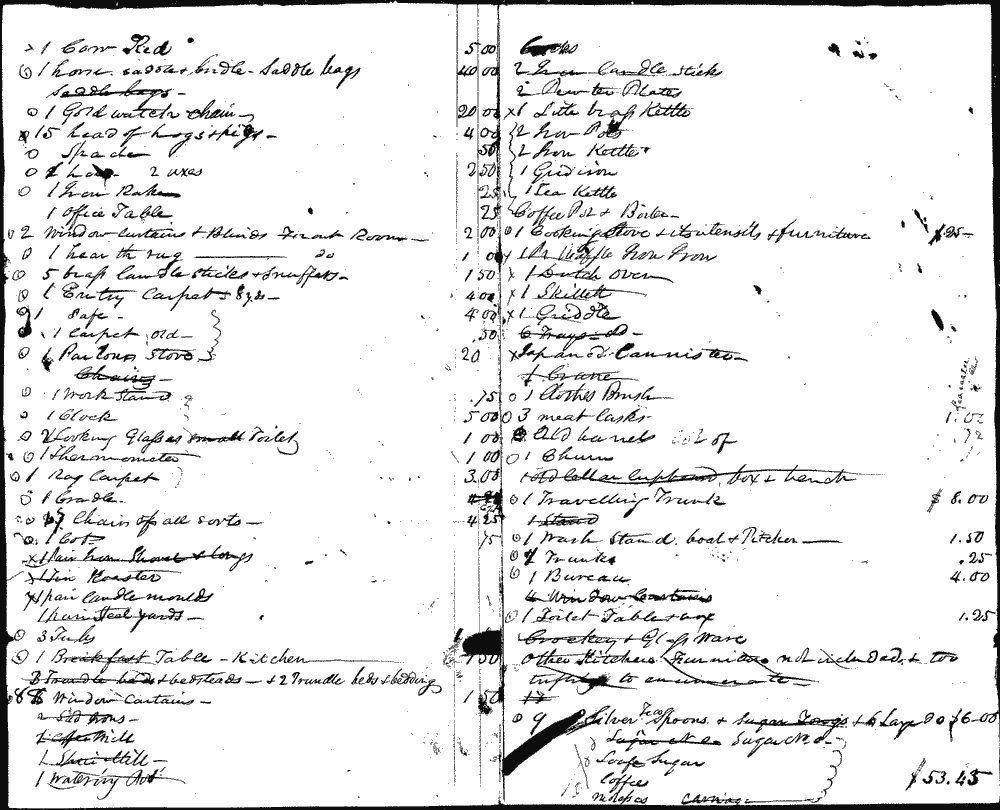 1 Cow Red 5 00
1 horse. saddle & bridle - Saddle bags 40 00
Saddle bags -
1 Gold watch chain 20 00
15 head of hogs & pigs - 4 00
Spade 50
2 axes 2 50
1 Iron Rake 25
1 Office Table 25
2 Window Curtains & Blinds Front Room - 2 00
1 hearth rug 1 00
5 brass Candle sticks & snuffers - 1 50
1 Entry Carpet 4 00
1 Safe - 4 00
1 Carpet old - .50
1 Parlour Stove 20
Chairs -
1 Work Stand .75
1 Clock 5 00
2 Looking Glasses small Toilet 1 00
1 Thermometer 1 00
1 Rag Carpet 3.00
1 Cradle.
Chairs of all sorts - 4 25
1 Cot
x 1 Pair Iron Shovel & tongs
x 1 Tin Roaster
x 1 pair Candle moulds
1 pair Steel yards -
3 Tubs
1 Breakfast Table - Kitchen 1 50
3 Trundle beds & bedsteads - & 2 Trundle beds & bedding
8 Window Curtains - 1 50
2 Sad Irons -
1 Coffee Mill
1 Watering Pot
2 Iron Candle sticks
2 Pewter Plates
x 1 Little brass Kettle
2 Iron Pots
2 Iron Kettles
1 Gridiron
1 Tea Kettle
Coffee Pot & Boiler -
1 Cooking Stove & utensils & furniture $25-
x 1 Pr Waffle Iron
x 1 Dutch Oven
x 1 Skillett
x 1 Griddle
6 Trays - do -
x Japaned Cannister -
1 Crane
1 Clothes Brush
3 meat Casks
Old barrels out of
1 Churn
1 old Cellar Cupboard, box & bench
1 Travelling Trunk $ 8.00
1 Stand
1 Wash Stand. bowl & Pitcher - 1.50
Trunks .25
1 Bureau 4.00
4 Window Curtains
1 Toilet Table & box 1.25
Crockery & Glass Ware
Other Kitchen Furniture not included, & too
trifling to enumerate -
9 Silver Tea Spoons & Sugar Tongs & 6 Large do $6-00
Sugar
Loaf Sugar
Coffee
Molasses carriage
$53.45